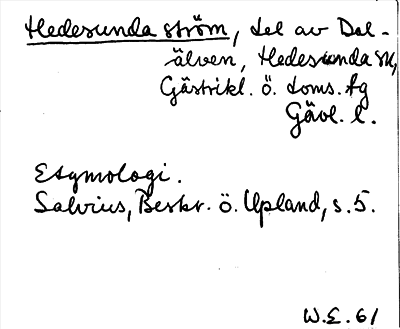 Hedesunda ström, del av Dal-
älven, Hedesunda sn,
Gästrikl. ö. doms. fg
Gävl. l.
Etymologi.
Salvius, Beskr. ö. Upland, s. 5.
W.E. 61